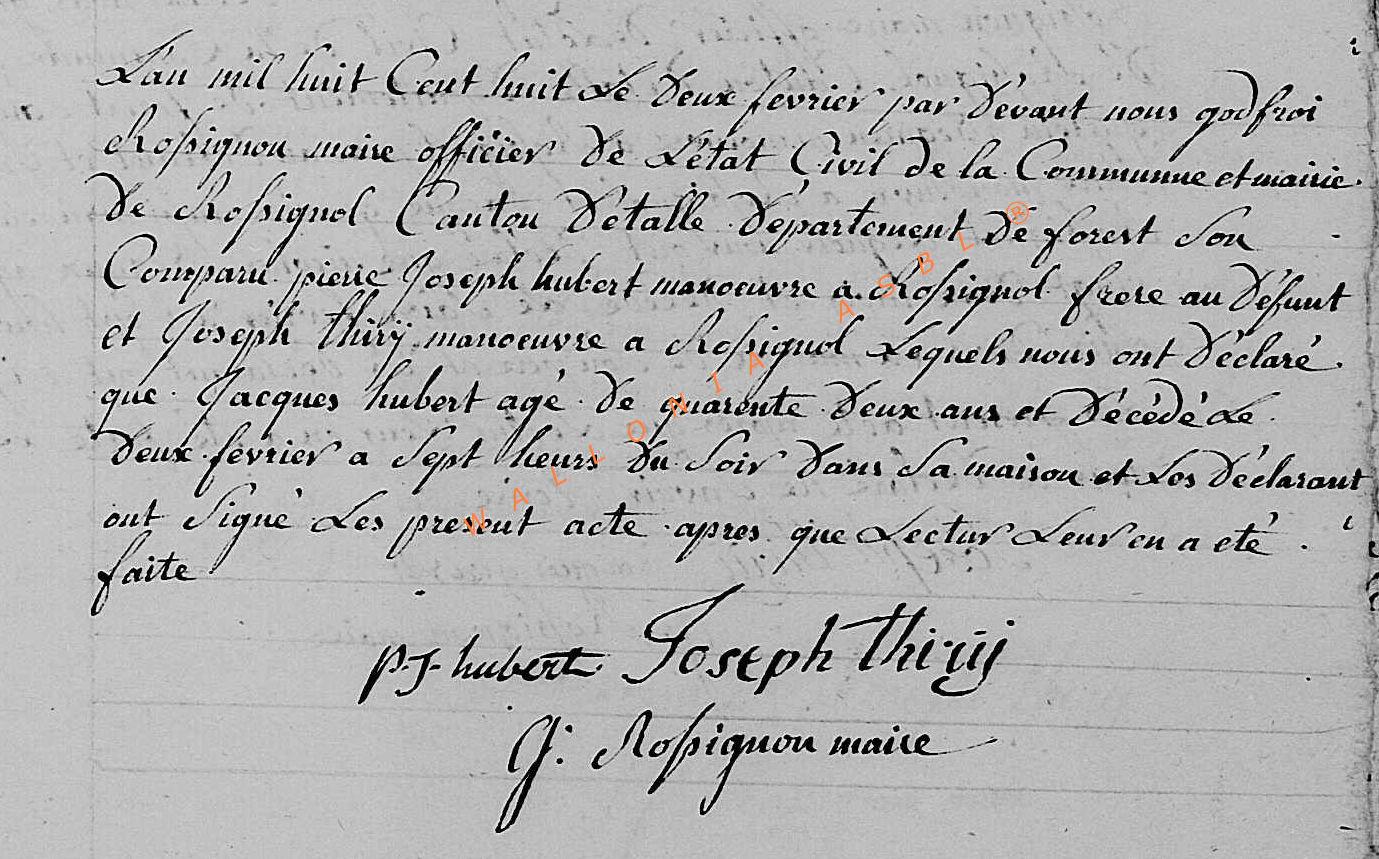 L'an mil huit Cent huit Le Deux fevrier par Dévant nous godfroi
Rossignon maire officier De L'état Civil de la Communne et mairie
De Rossignol Canton Détalle Département De forest Son
Comparu pierre Joseph hubert manoeuvre a Rossignol frere au Défunt
et Joseph thirÿ manoeuvre a Rossignol Lequels nous ont Déclaré
que Jacques hubert agé De quarente Deux ans et Décédé Le
Deux fevrier a Sept heurs Du Soir Dans Sa maison et Les Déclarant
ont Signé Les present acte apres que Lectur Leur en a eté
faite
PJ hubert Joseph Thirÿ
G: Rossignon maire
WALLONIA ASBL ®